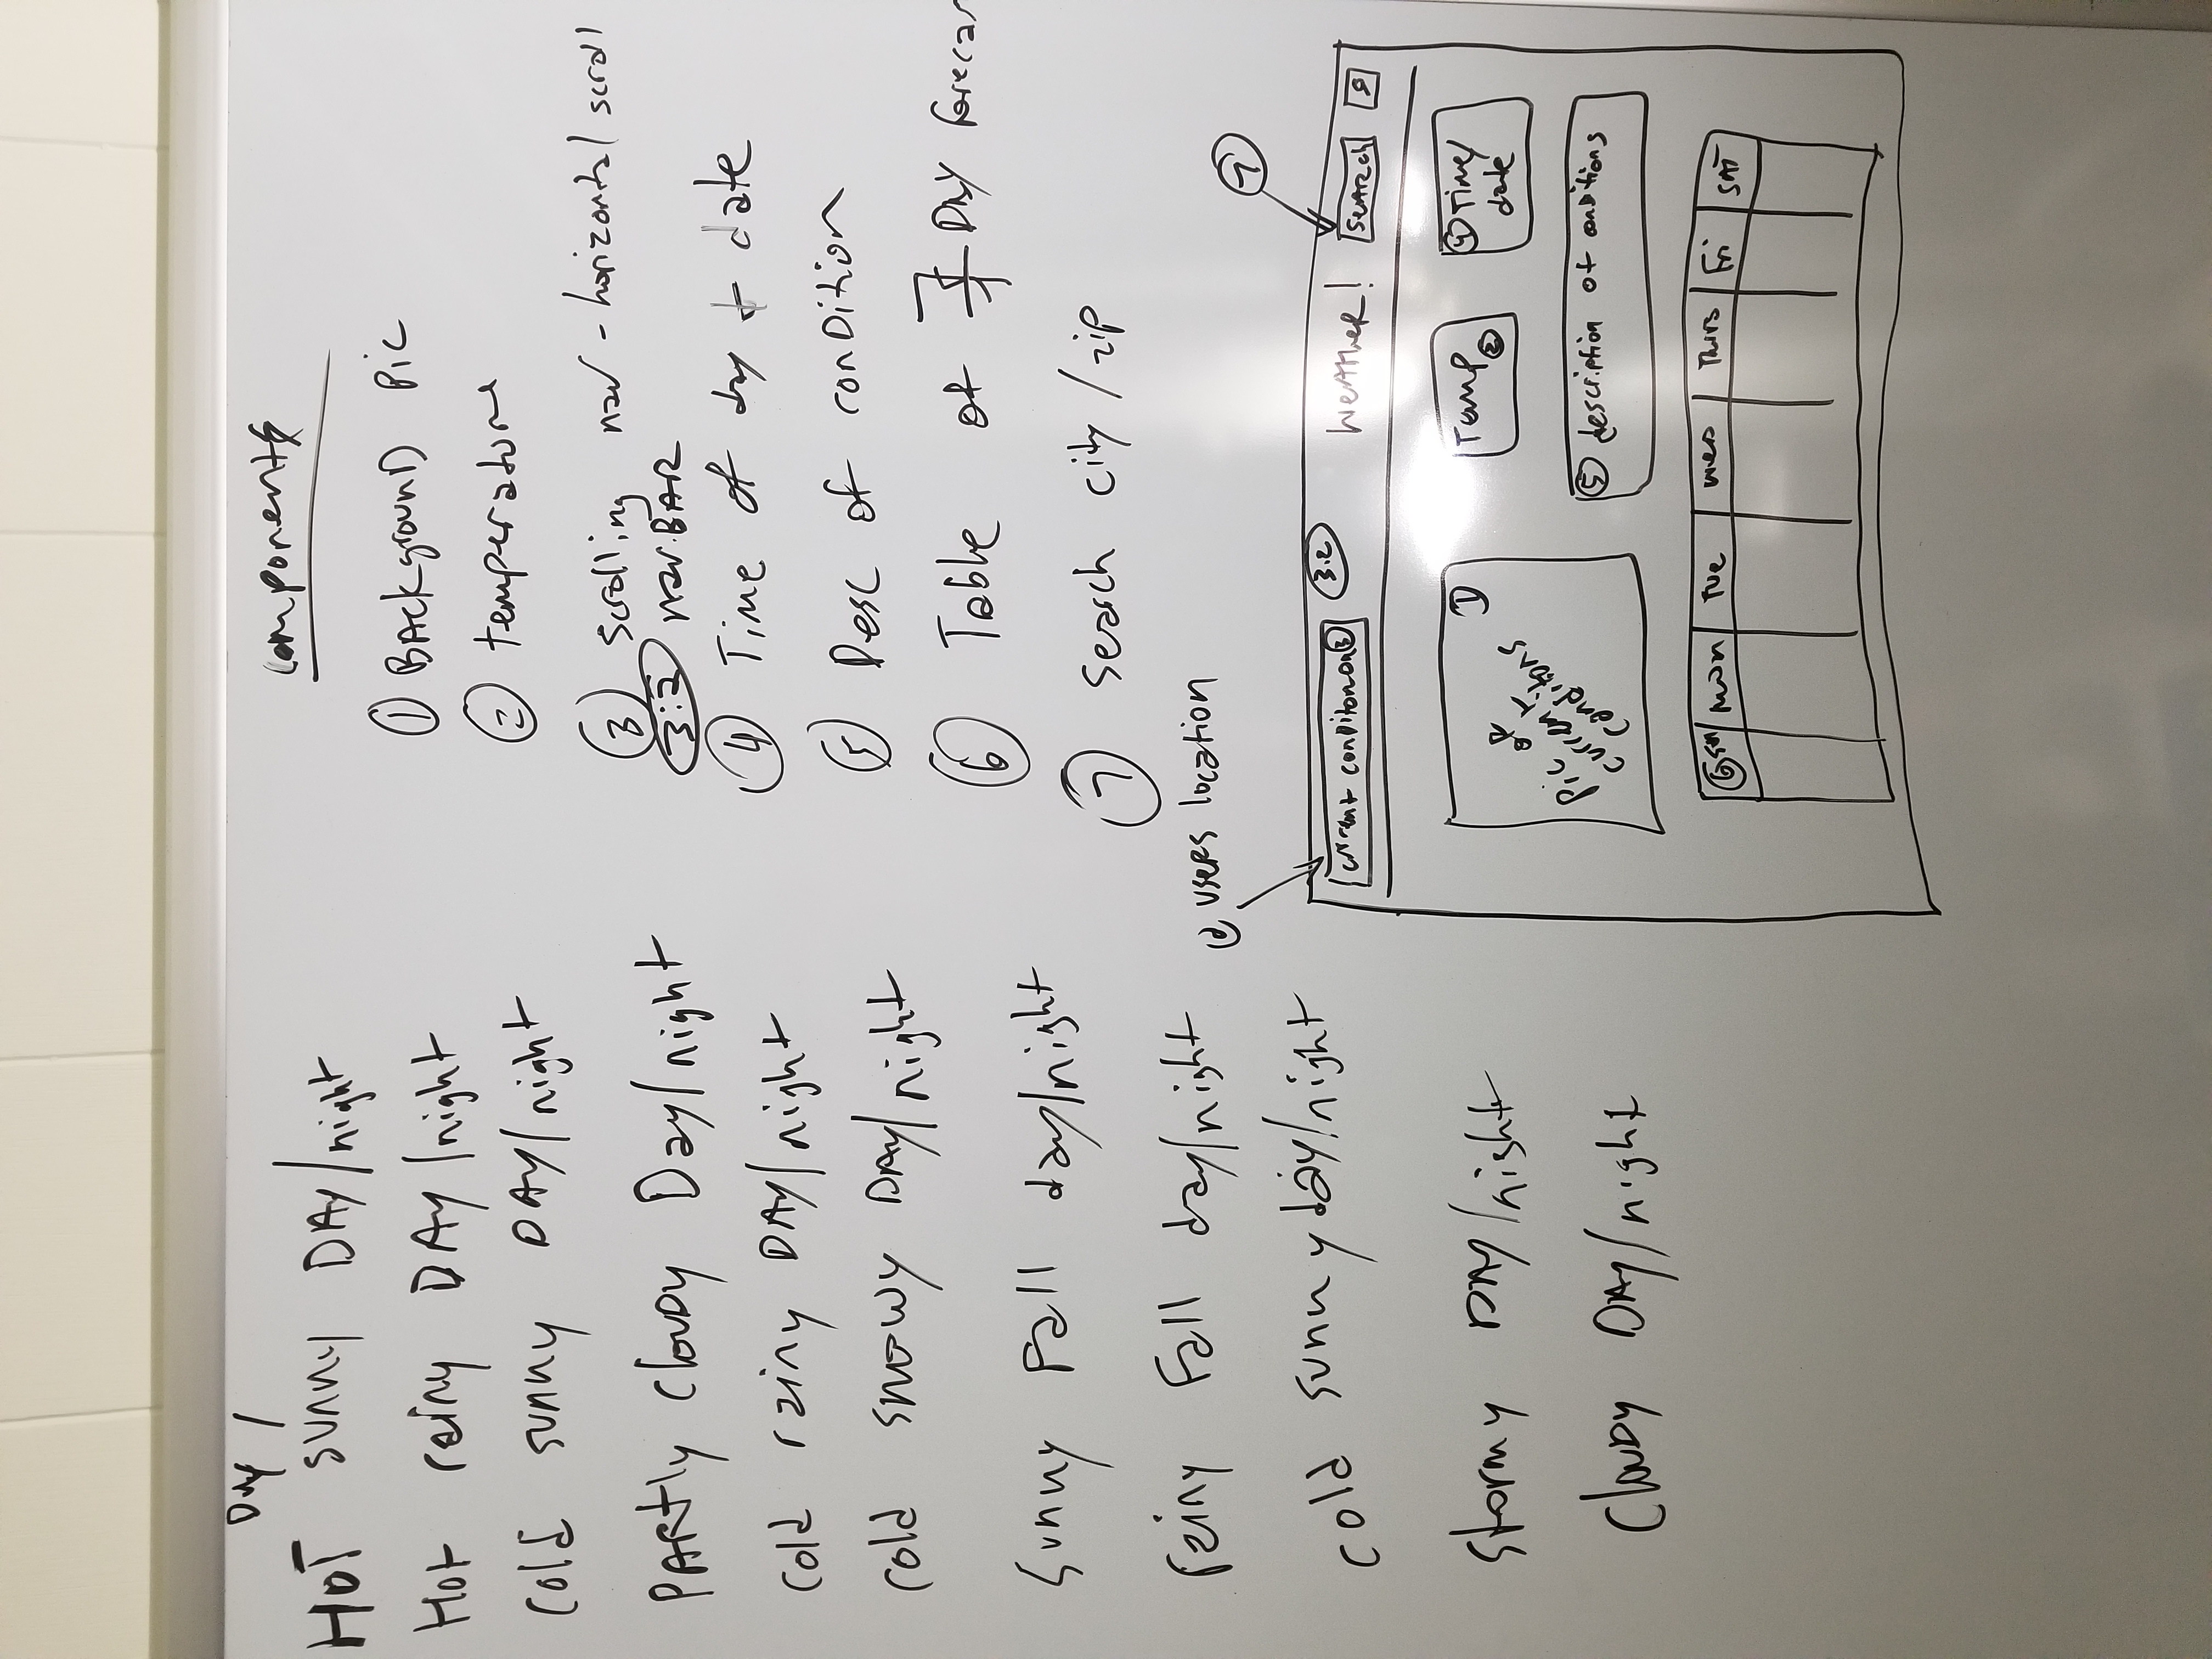 Day /
HOT sunny DAY/night
Hot rainy DAY/night
cold sunny DAY/night
PARtly ClouDy Day/night
cold rainy DAY/night
cold snowy DAY/night
Sunny Fall day/night
rainy Fall day/night
cold sunny day/night
stormy DAY/night
ClouDy DAY/night
components
① BAckgrounD Pic
② temperature
③ scrolling nav - horizontal scroll
3.2 nav.BAR
④ Time of day + date
⑤ Desc of conDition
⑥ Table of 7 DAY forecas
⑦ search city/zip
@ useRs location
7
current conDiton 3
3.2
WeATHeR!
SeARch
1
Pic of
current
conditons
Temp 2
④ Time/
date
⑤ description of conDitions
⑥ sun mon Tue weD Thurs Fri SAT